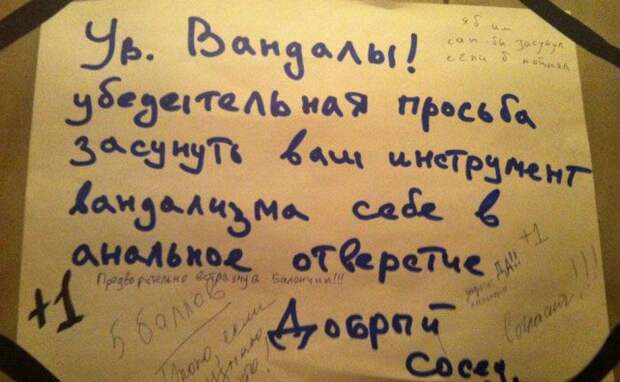 Ув. Вандалы!
убедетельная просьба
засунуть ваш инструмент
вандализма себе в
анальное отверстие
Добрый
сосед.
яб им
сам бы засунул
если б поймал
+1
Предварительно встряхнув Балончик!!!
5 баллов
если
узнаю
ДА!!
+1
согласна!!!